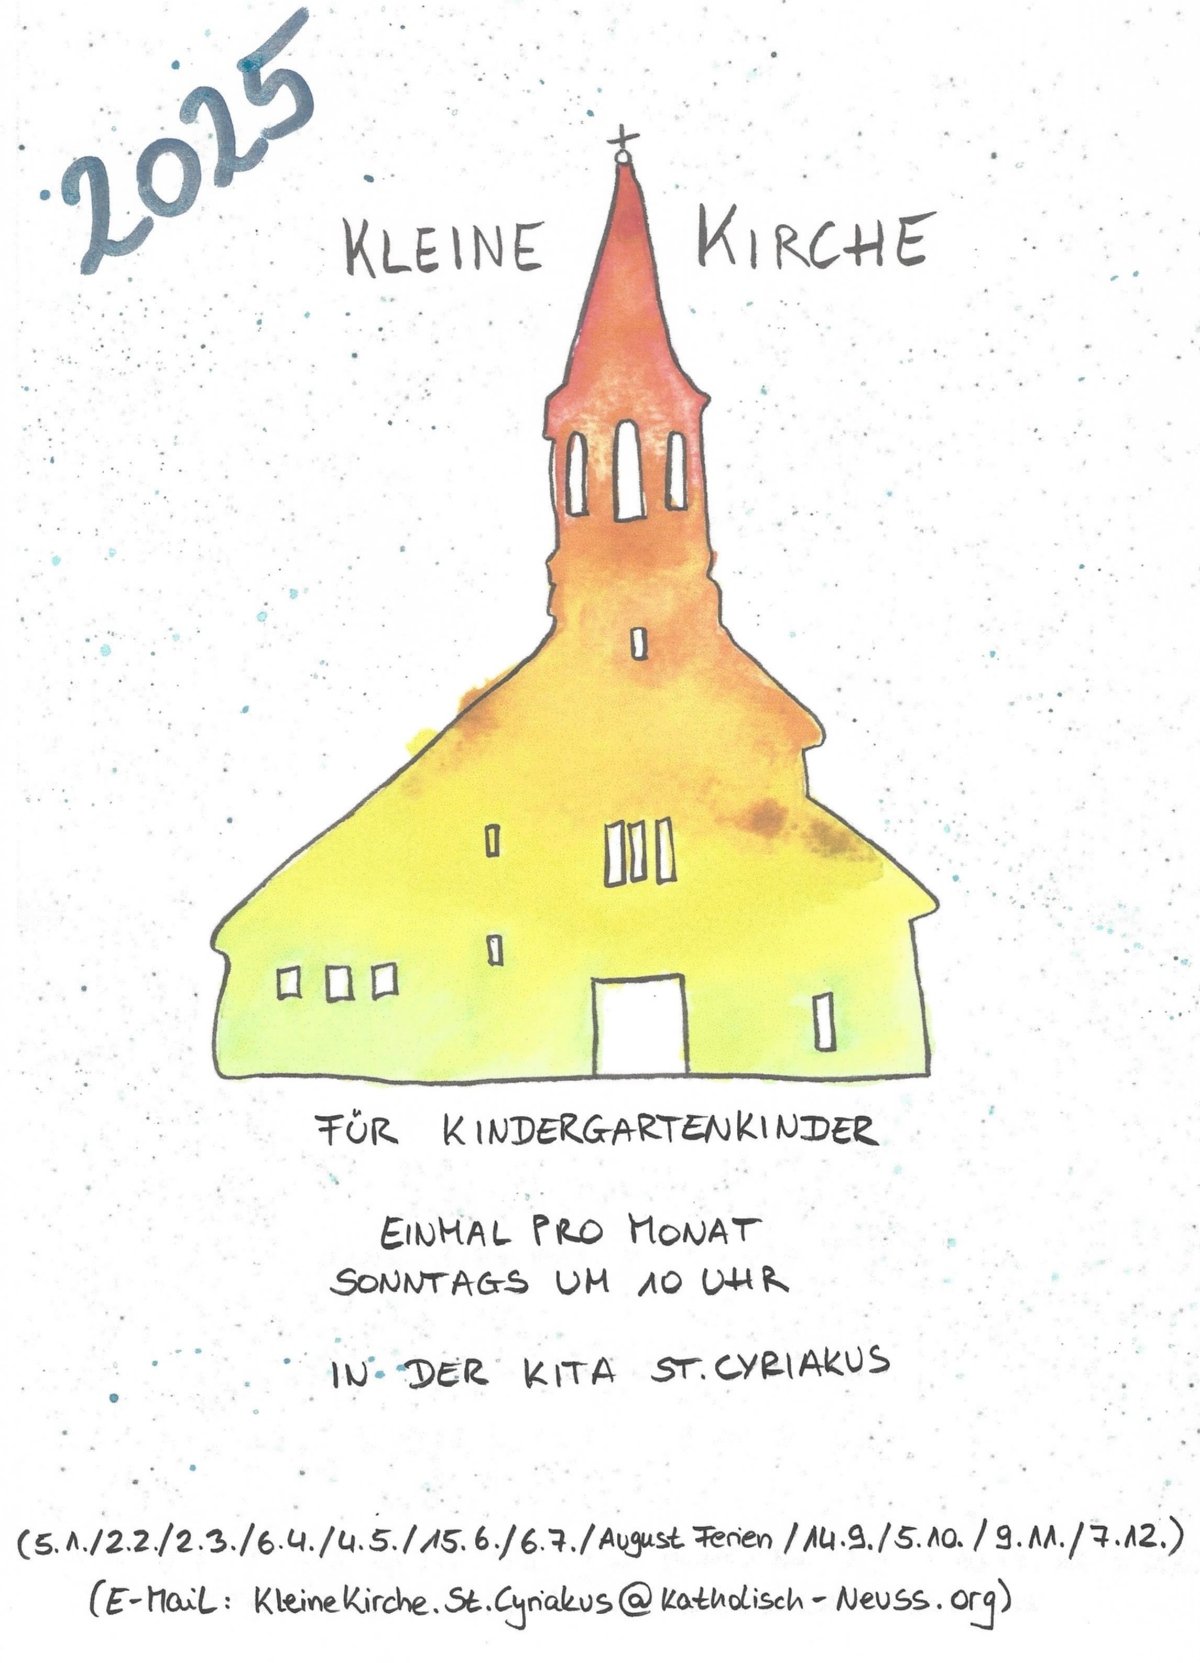 2025
KLEINE KIRCHE
FÜR KINDERGARTENKINDER
EINMAL PRO MONAT
SONNTAGS UM 10 UHR
IN DER KITA ST. CYRIAKUS
(5.1./2.2./2.3./6.4./4.5./15.6./6.7./August Ferien/14.9./5.10./9.11./7.12.)
(E-Mail: KleineKirche.St.Cyriakus@katholisch-Neuss.org)